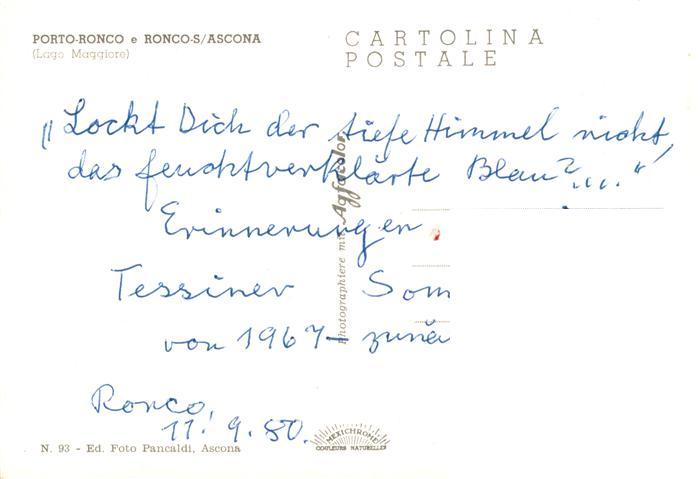 PORTO-RONCO e RONCO-S/ASCONA
(Lago Maggiore)
CARTOLINA
POSTALE
„Lockt Dich der tiefe Himmel nicht,
das feuchtverklärte Blau?...."
Erinnerungen
Tessiner Som
von 1967 – zunä
Ronco,
11. 9. 80.
Photographiere mit Agfacolor
N. 93 - Ed. Foto Pancaldi, Ascona
MEXICHROME
COULEURS NATURELLES